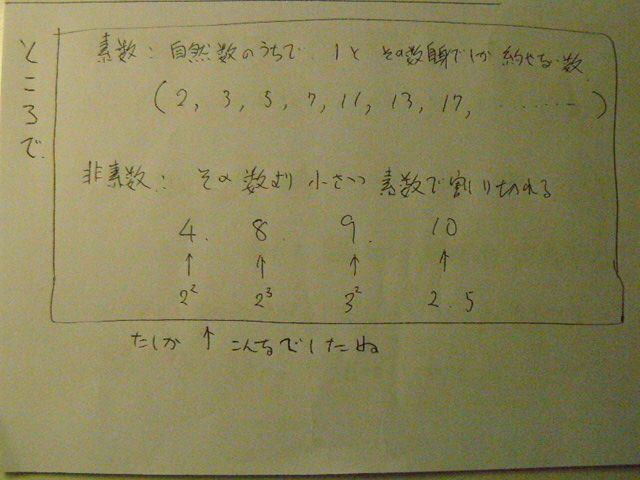 ところで
素数: 自然数のうちで 1と その数自身でしか 約せない数
(2, 3, 5, 7, 11, 13, 17, ………)
非素数: その数より小さい素数で割り切れる
4. 8. 9. 10
↑ ↑ ↑ ↑
2² 2³ 3² 2.5
たしか ↑ こんなでしたね